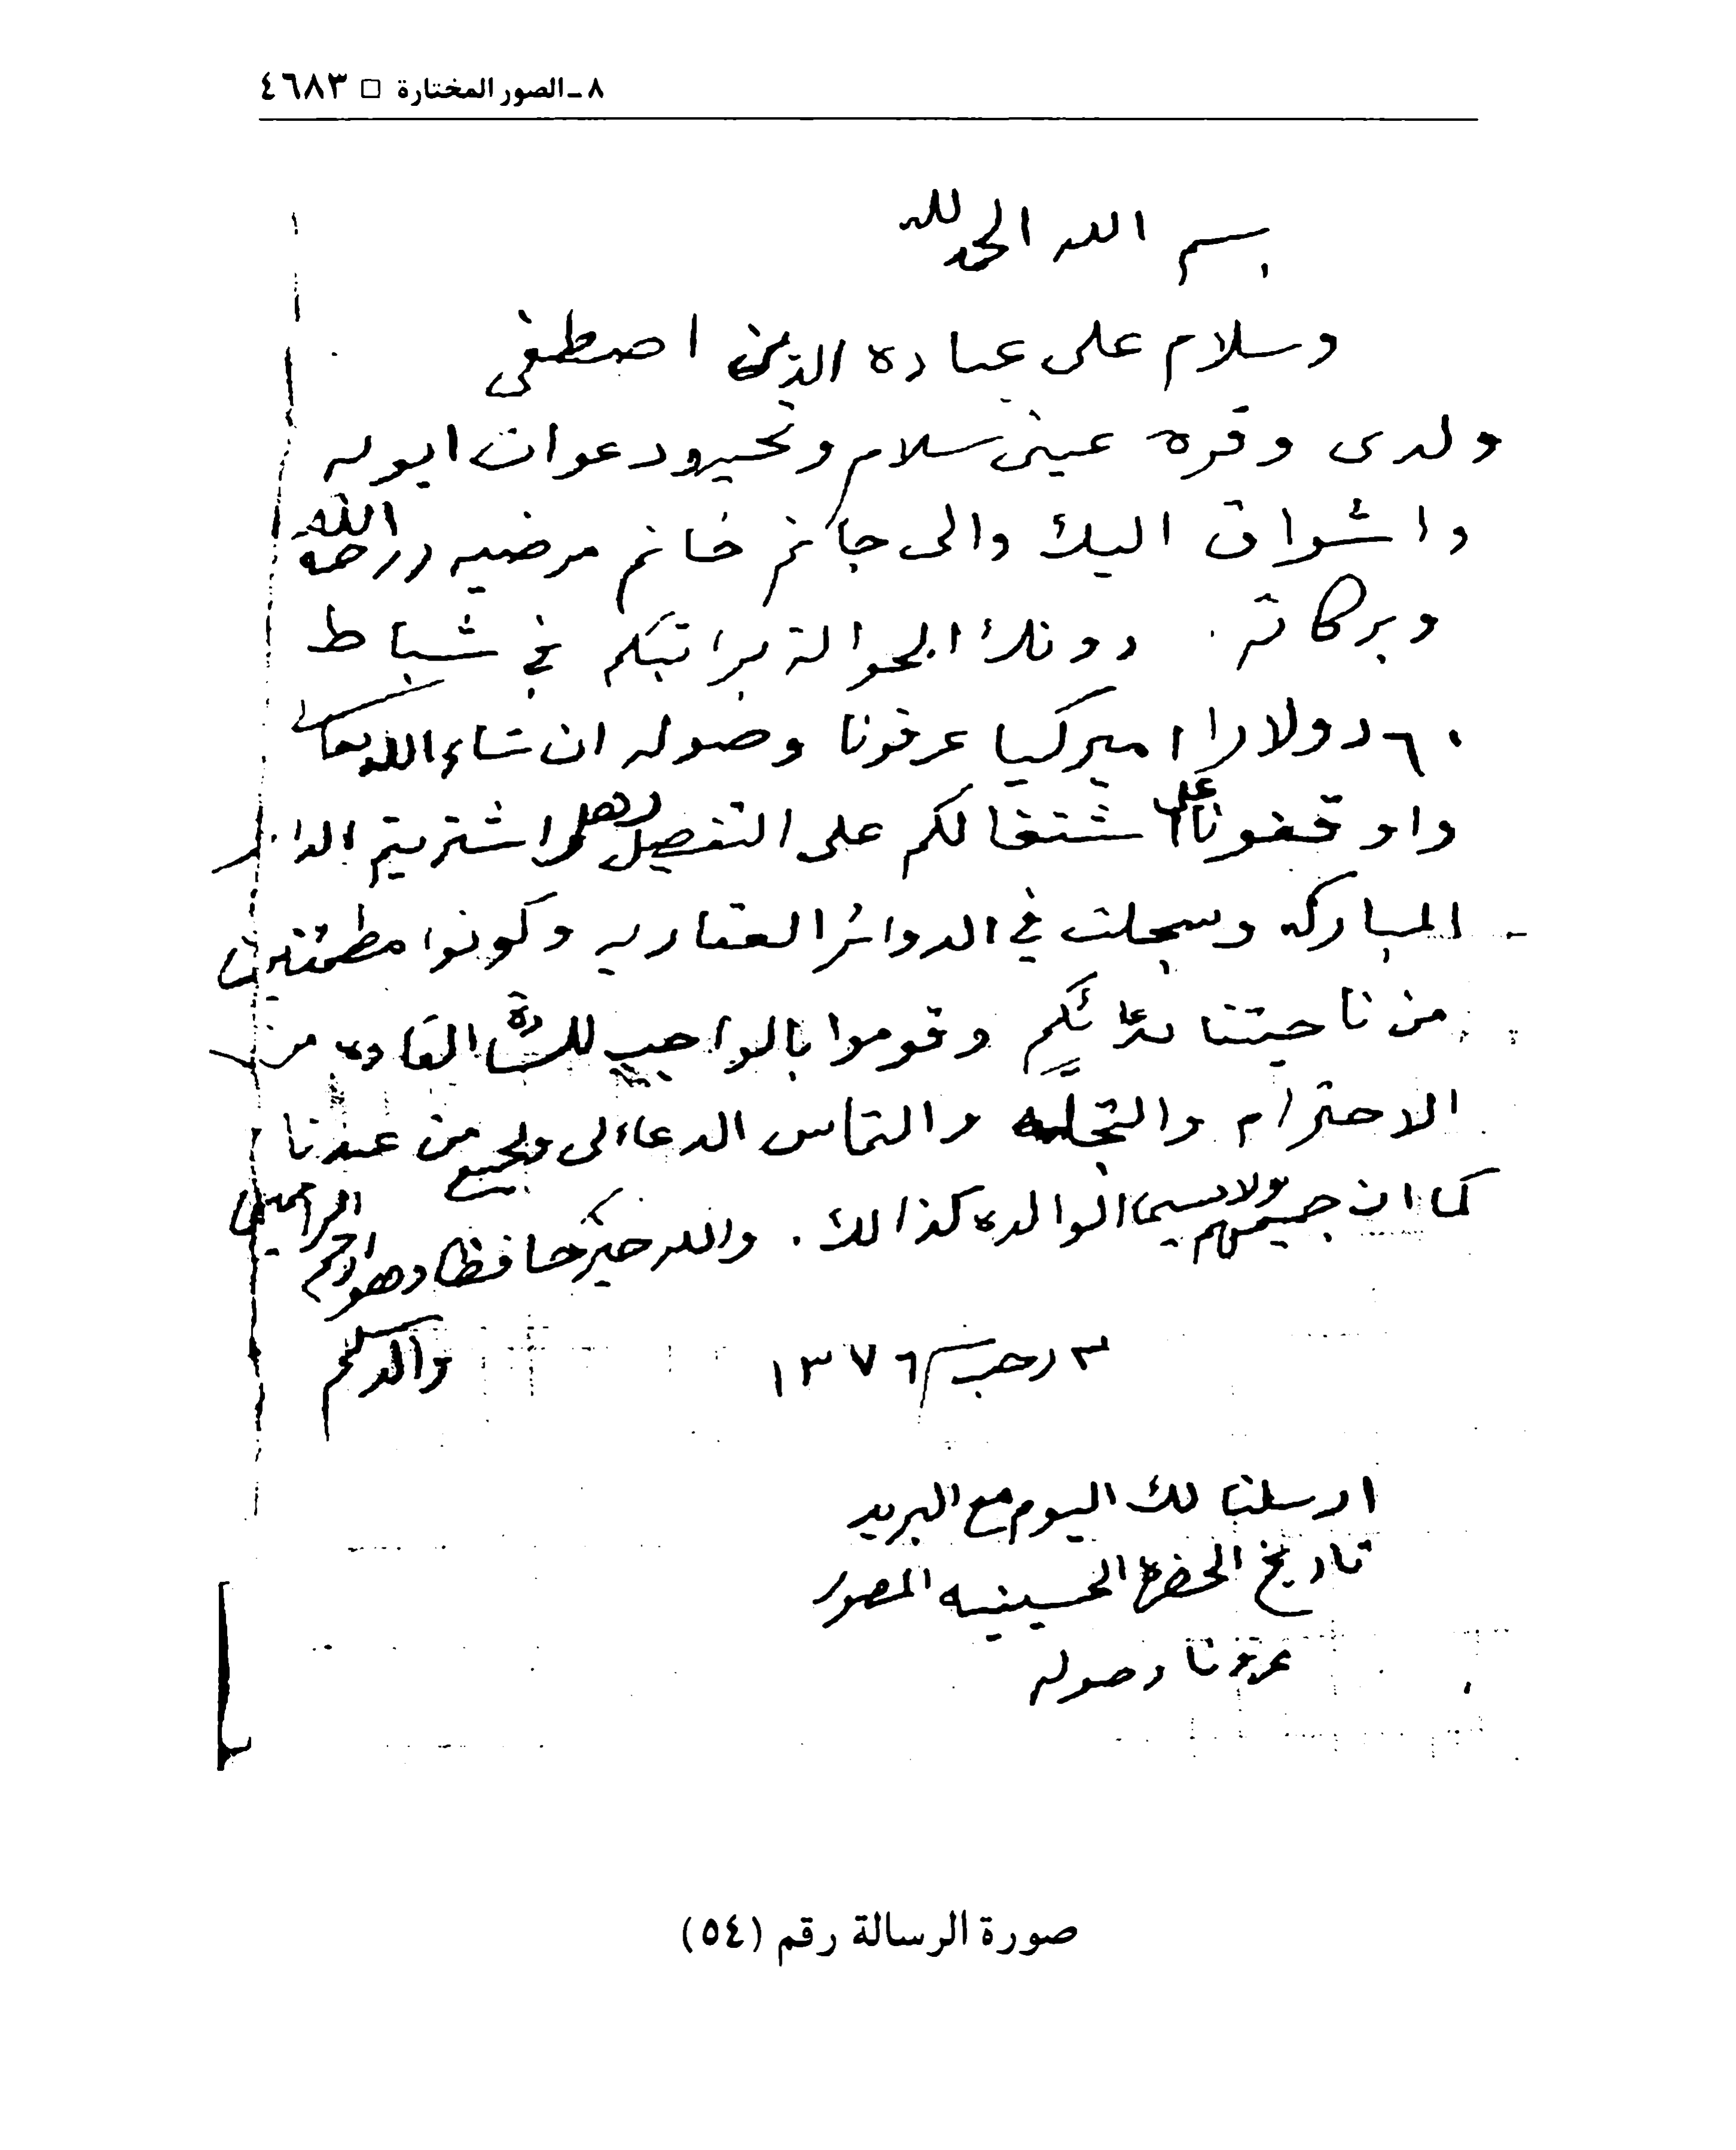 ٨ـ الصور المختارة □ ٤٦٨٣
بسم الله الحمد لله
وسلام على عباده الذين اصطفى
ولدى وقره عينى سلام وتحيه ودعوات ابويه
واشواق اليك والى خانم مرضيه ورحمة الله
وبركاته. دونك الحوالة براتبكم في شباط
٦٠ دولارا اميركيا عرفونا وصوله ان شاء الله تعالى
واوقفونا على اشتغالكم على التفصيل وهل اشتريتم الدار
المباركه وسجلت في الدوائر العقاريه وكونوا مطمئنين
من ناحيتنا وقوموا بالواجب للسادة القاده من
الاحترام والتجله والتماس الدعاء لى ولجميع من عندنا
كما ان جميعهم ولا سيما الوالده كذالك. والله خير حافظا وهو ارحم الراحمين
٣ رجب ١٣٧٦ والدكم
ارسلنا لك اليوم مع البريد
تاريخ الحضرة الحسينيه المصور
عرفونا وصوله
صورة الرسالة رقم (٥٤)